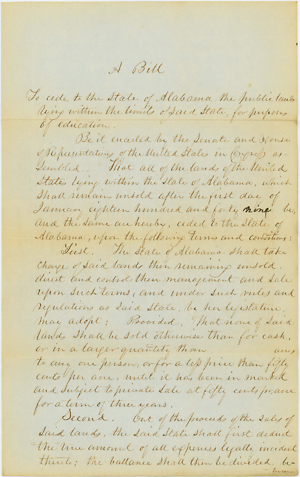 A Bill
To cede to the State of Alabama the public lands
lying within the limits of said State, for purposes
of education.
Be it enacted by the Senate and House
of Representatives of the United States in Congress as
sembled. That all of the lands of the United
States lying within the State of Alabama, which
shall remain unsold after the first day of
January eighteen hundred and forty nine be,
and the same are hereby, ceded to the State of
Alabama, upon the following terms and conditions:
First. The State of Alabama shall take
charge of said lands then remaining unsold,
direct and control their management and sale
upon such terms, and under such rules and
regulations as said State, by her legislature,
may adopt; Provided, That none of said
lands shall be sold otherwise than for cash,
or in a larger quantity than acres
to any one person, or for a less price than fifty
cents per acre, until it has been in market
and subject to private sale at fifty cents per acre
for a term of three years.
Second. Out of the proceeds of the sales of
said lands, the said State shall first deduct
the true amount of all expenses legally incident
thereto; the ballance shall then be divided be-